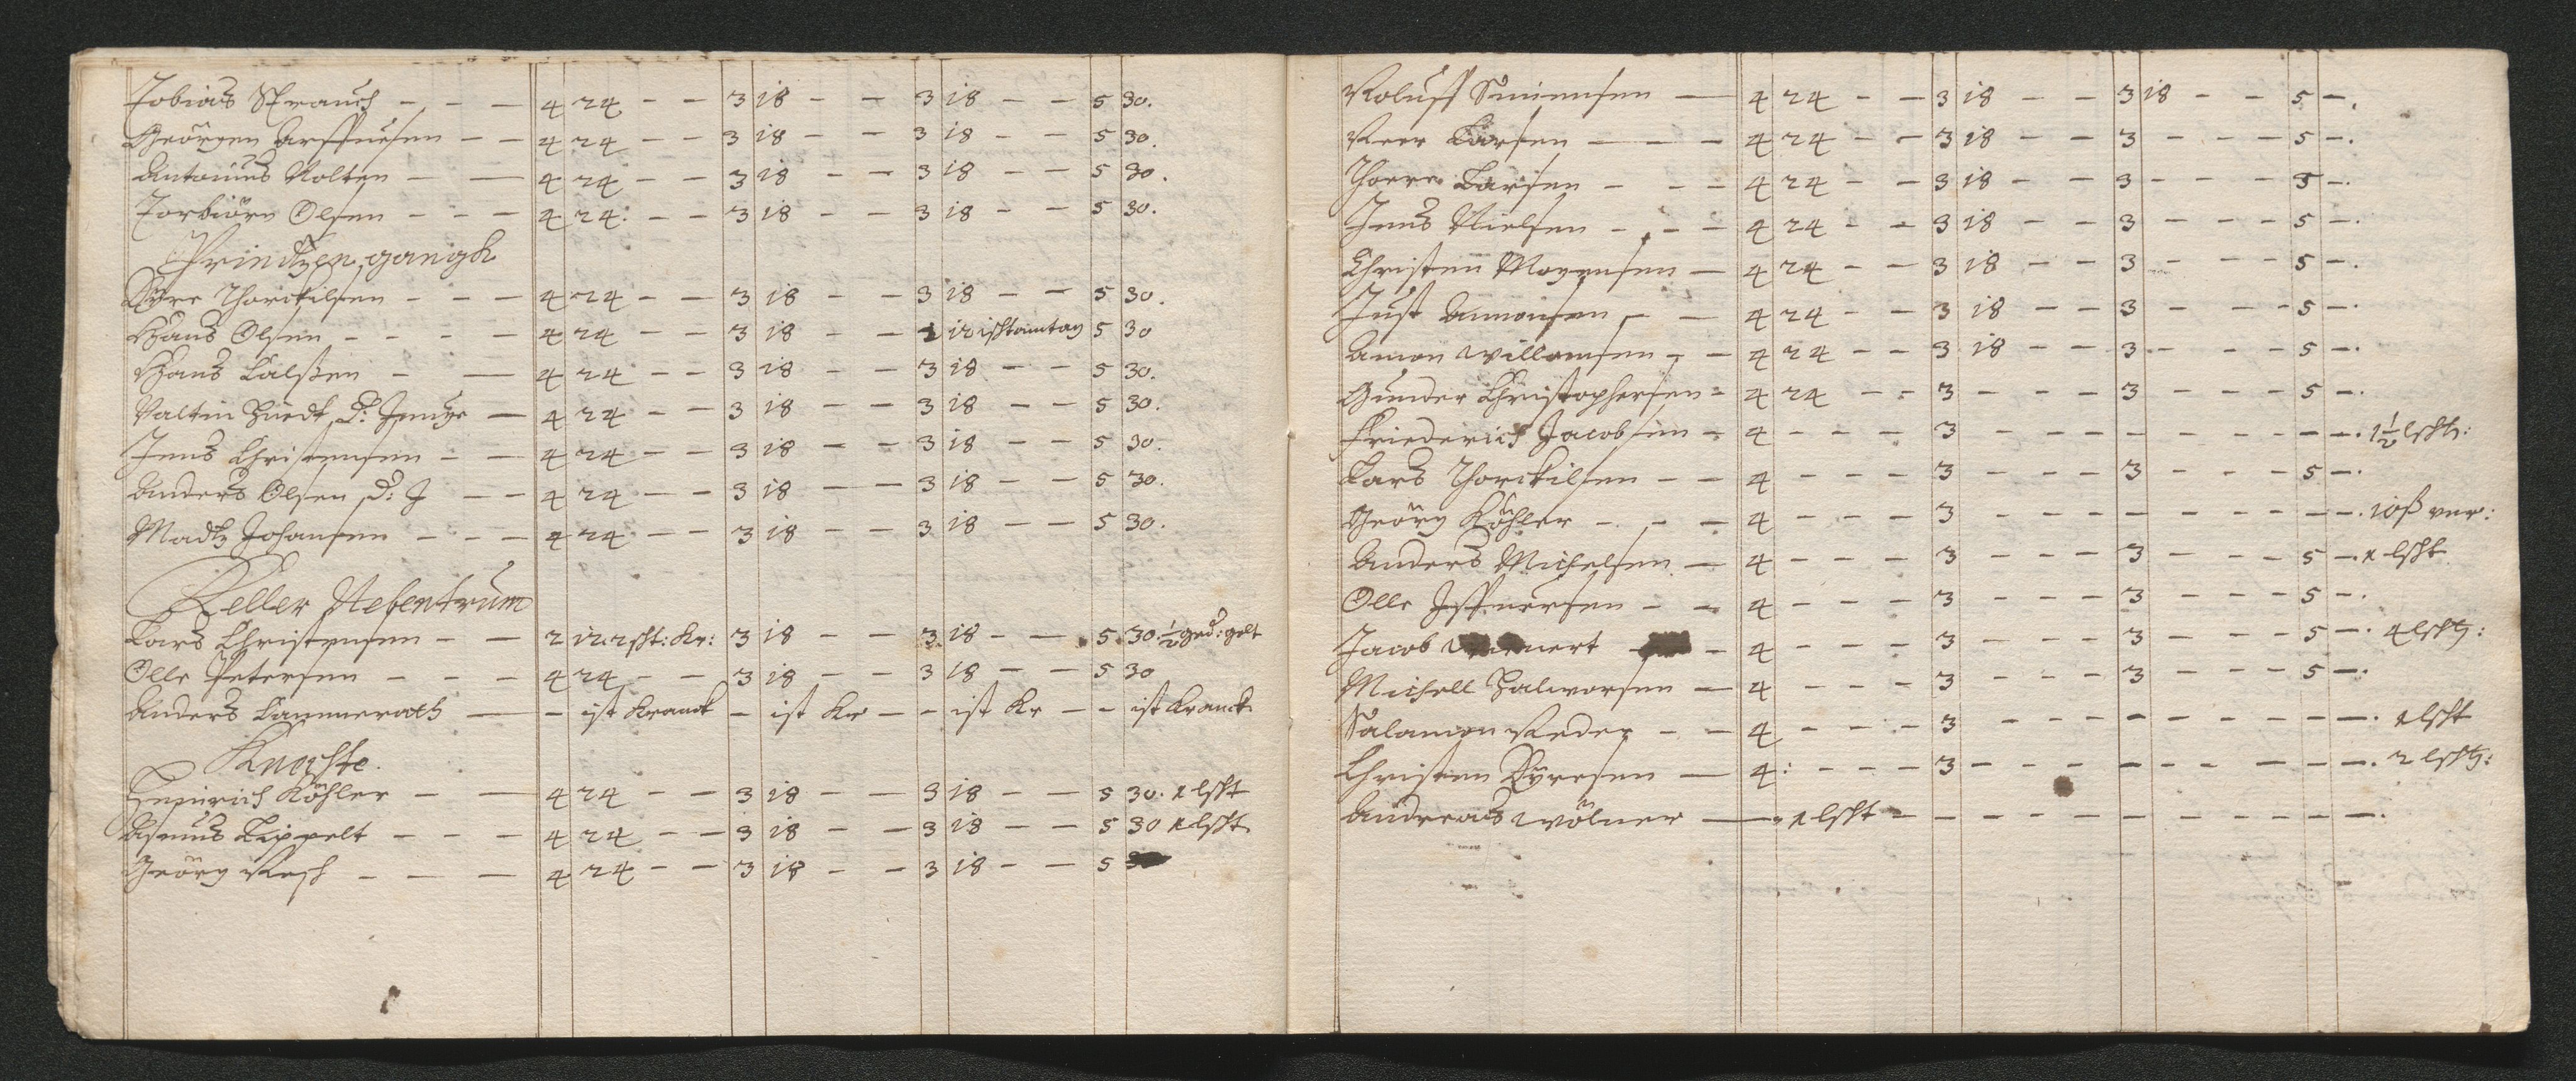 Tobias Strauch - - - 4 24 - - 3 18 - - 3 18 - - 5 30.
Geörgen Arffuesen - - 4 24 - - 3 18 - - 3 18 - - 5 30.
Antonius Nolten - - 4 24 - - 3 18 - - 3 18 - - 5 30.
Torbiörn Olsen - - - 4 24 - - 3 18 - - 3 18 - - 5 30.
Printzen gangk
Syre Thorckilsen - - - 4 24 - - 3 18 - - 3 18 - - 5 30.
Hans Olsen - - - - 4 24 - - 3 18 - - 1 12 5 30
Hans Calßen - - 4 24 - - 3 18 - - 3 18 - - 5 30.
Valtin D: Jünger - 4 24 - - 3 18 - - 3 18 - - 5 30.
Jens Christensen - - 4 24 - - 3 18 - - 3 18 - - 5 30.
Anders Olsen D: J - - 4 24 - - 3 18 - - 3 18 - - 5 30.
Madtz Johansen - - - 4 24 - - 3 18 - - 3 18 - - 5 30.
Keller Nebentrum
Lars Christensen - - 2 12 2 scht: Kr: 3 18 - - 3 18 - - 5 30. ½ ged: gelt
Olle Petersen - - - 4 24 - - 3 18 - - 3 18 - - 5 30
Anders Cammerath - - ist Kranck - ist Kr - - ist Kr - - ist Kranck
Knechte.
Heinrich Köhler - - 4 24 - - 3 18 - - 3 18 - - 5 30. 1 lscht
Asmus Lippelt - - - 4 24 - - 3 18 - - 3 18 - - 5 30 1 lscht.
Geörg Resch - - - 4 24 - - 3 18 - - 3 18 - - 5
Roluff Simensen - 4 24 - - 3 18 - - 3 18 - - 5 -.
Peer Larsen - - - 4 24 - - 3 18 - - 3 - - - 5 -.
Thore Larsen - - - 4 24 - - 3 18 - - 3 - - - 5 -.
Jens Nielsen - - - 4 24 - - 3 18 - - 3 - - - 5 -.
Christen Mogensen - 4 24 - - 3 18 - - 3 - - - 5 -.
Just Amonsen - - 4 24 - - 3 18 - - 3 - - - 5 -.
Amon Willomsen - - 4 24 - - 3 18 - - 3 - - - 5 -.
Gunder Christophersen - 4 24 - - 3 - - - 3 - - - 5 -.
Friederich Jacobsen - 4 - - - 3 - - - - - - - - -. 1½ lscht:
Lars Thorckilsen - - 4 - - - 3 - - - 3 - - - 5 -.
Geörg Köhler - - - 4 - - - 3 - - - - - - - - -. 10 ß ver:
Anders Michelsen - 4 - - - 3 - - - 3 - - - 5 -. 1 lscht
Olle - - 4 - - - 3 - - - 3 - - - 5 -.
Jacob - 4 - - - 3 - - - 3 - - - 5 -. 4 lscht:
Michell Halworsen - 4 - - - 3 - - - 3 - - - 5 -.
Salamon Reder - - 4 - - - 3 - - - - - - - - -. 1 lscht
Christen Syresen - 4: - - - 3 - - - - - - - - -. 2 lscht:
Andreas Wölner - - 1 lscht - - - - - - - - - - - -.